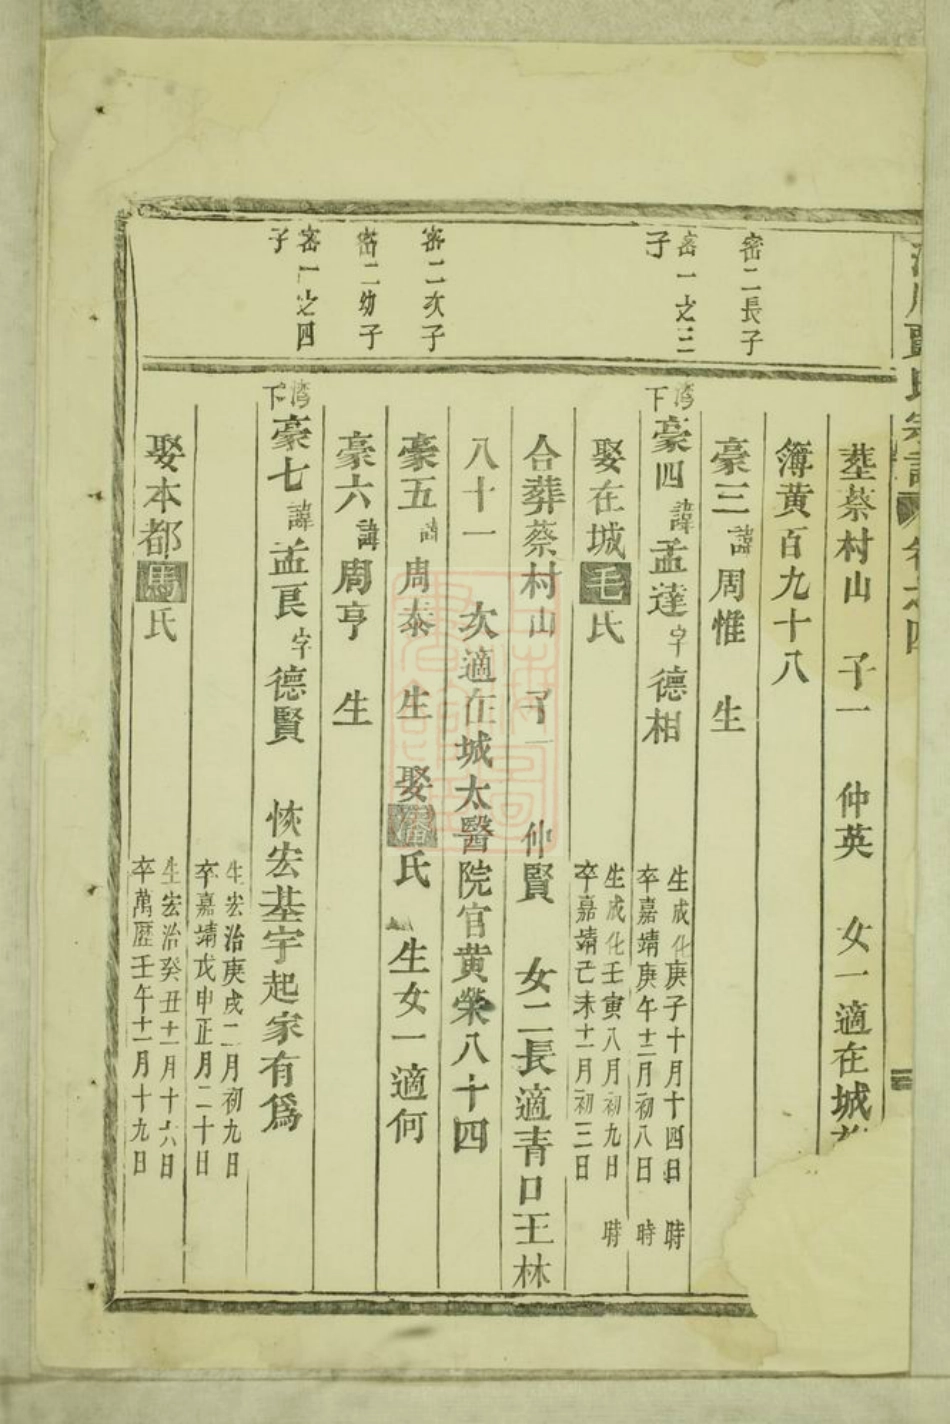 氏宗譜 卷之四
塟蔡村山 子一 仲英 女一適在城
簿黃百九十八
密二長子
豪三諱周惟 生
密一之三子
灣下豪四諱孟達字德相
生成化庚子十月十四日 時
卒嘉靖庚午十二月初八日 時
娶在城毛氏
生成化壬寅八月初九日 時
卒嘉靖己未十一月初三日
合葬蔡村山 子一 仲賢 女二長適青口王林
八十一 次適在城太醫院官黃榮八十四
密二次子
豪五諱周泰 生 娶潘氏 生女一適何
密二幼子
豪六諱周亨 生
密一之四子
灣下豪七諱孟良字德賢 恢宏基宇起家有爲
生宏治庚戌二月初九日
卒嘉靖戊申正月二十日
娶本都馬氏
生宏治癸丑十一月十六日
卒萬歷壬午十一月十九日